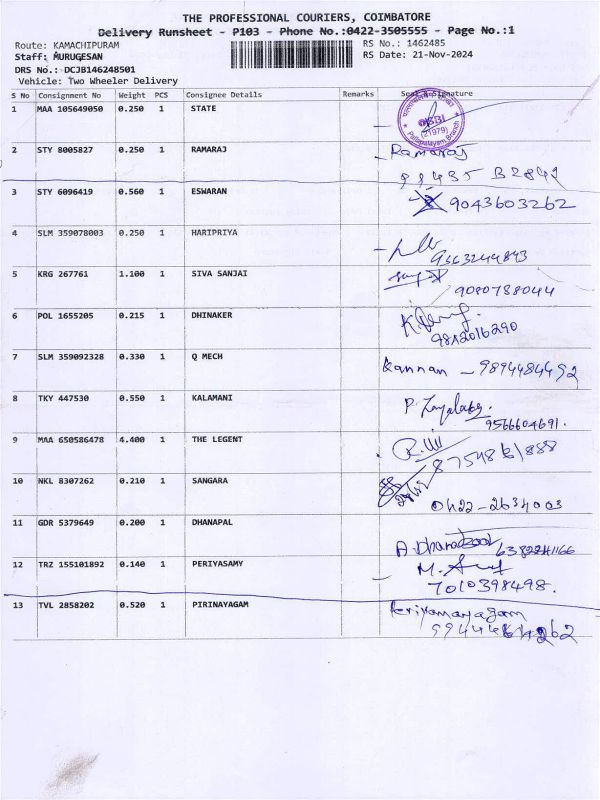 THE PROFESSIONAL COURIERS, COIMBATORE
Delivery Runsheet - P103 - Phone No.:0422-3505555 - Page No.:1
Route: KAMACHIPURAM RS No.: 1462485
Staff: MURUGESAN RS Date: 21-Nov-2024
DRS No.: DCJB146248501
Vehicle: Two Wheeler Delivery
S No Consignment No Weight PCS Consignee Details Remarks Seal & Signature
1 MAA 105649050 0.250 1 STATE
SBI
(21979)
Branch
2 STY 8005827 0.250 1 RAMARAJ Ramaraj
3 STY 6096419 0.560 1 ESWARAN 9043603262
4 SLM 359078003 0.250 1 HARIPRIYA
5 KRG 267761 1.100 1 SIVA SANJAI
9080788044
6 POL 1655205 0.215 1 DHINAKER
7 SLM 359092328 0.330 1 Q MECH Kannan - 9894484492
8 TKY 447530 0.550 1 KALAMANI
9566604691.
9 MAA 650586478 4.400 1 THE LEGENT
10 NKL 8307262 0.210 1 SANGARA
0422-2634003
11 GDR 5379649 0.200 1 DHANAPAL
12 TRZ 155101892 0.140 1 PERIYASAMY
7010398498.
13 TVL 2858202 0.520 1 PIRINAYAGAM